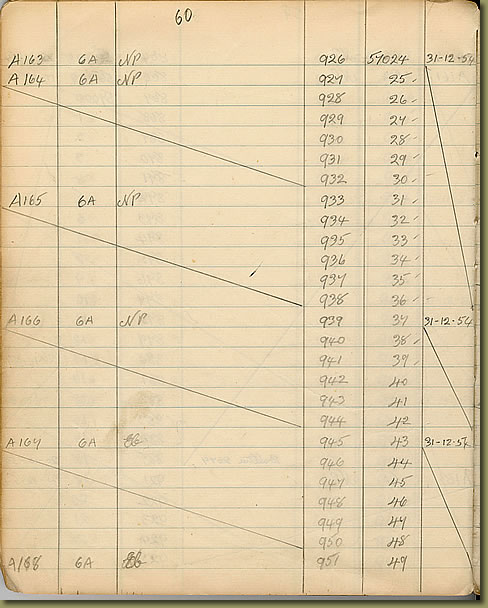 60
A163 6A NP 926 57024 31-12-54
A164 6A NP 927 25
928 26
929 27
930 28
931 29
932 30
A165 6A NP 933 31
934 32
935 33
936 34
937 35
938 36
A166 6A NP 939 37 31-12-54
940 38
941 39
942 40
943 41
944 42
A167 6A 945 43 31-12-54
946 44
947 45
948 46
949 47
950 48
A168 6A 951 49